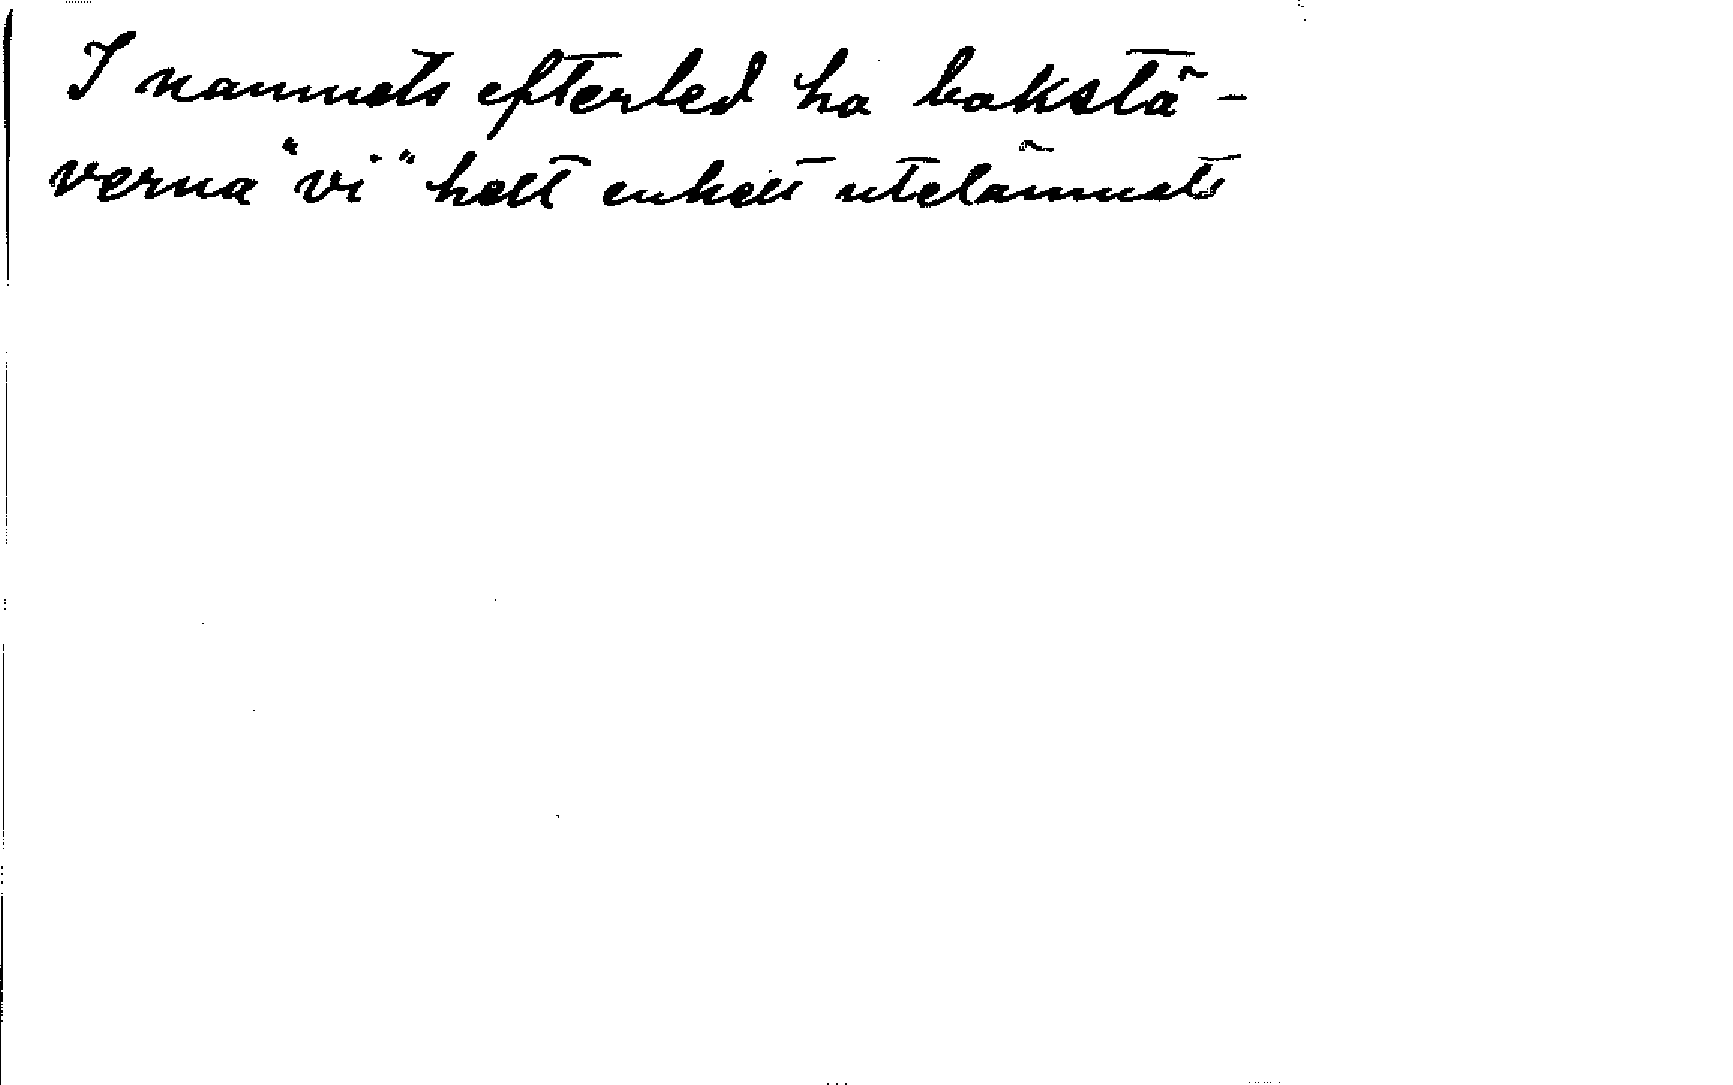 I namnets efterled ha bokstä-
verna "vi" helt enkelt utelämnats